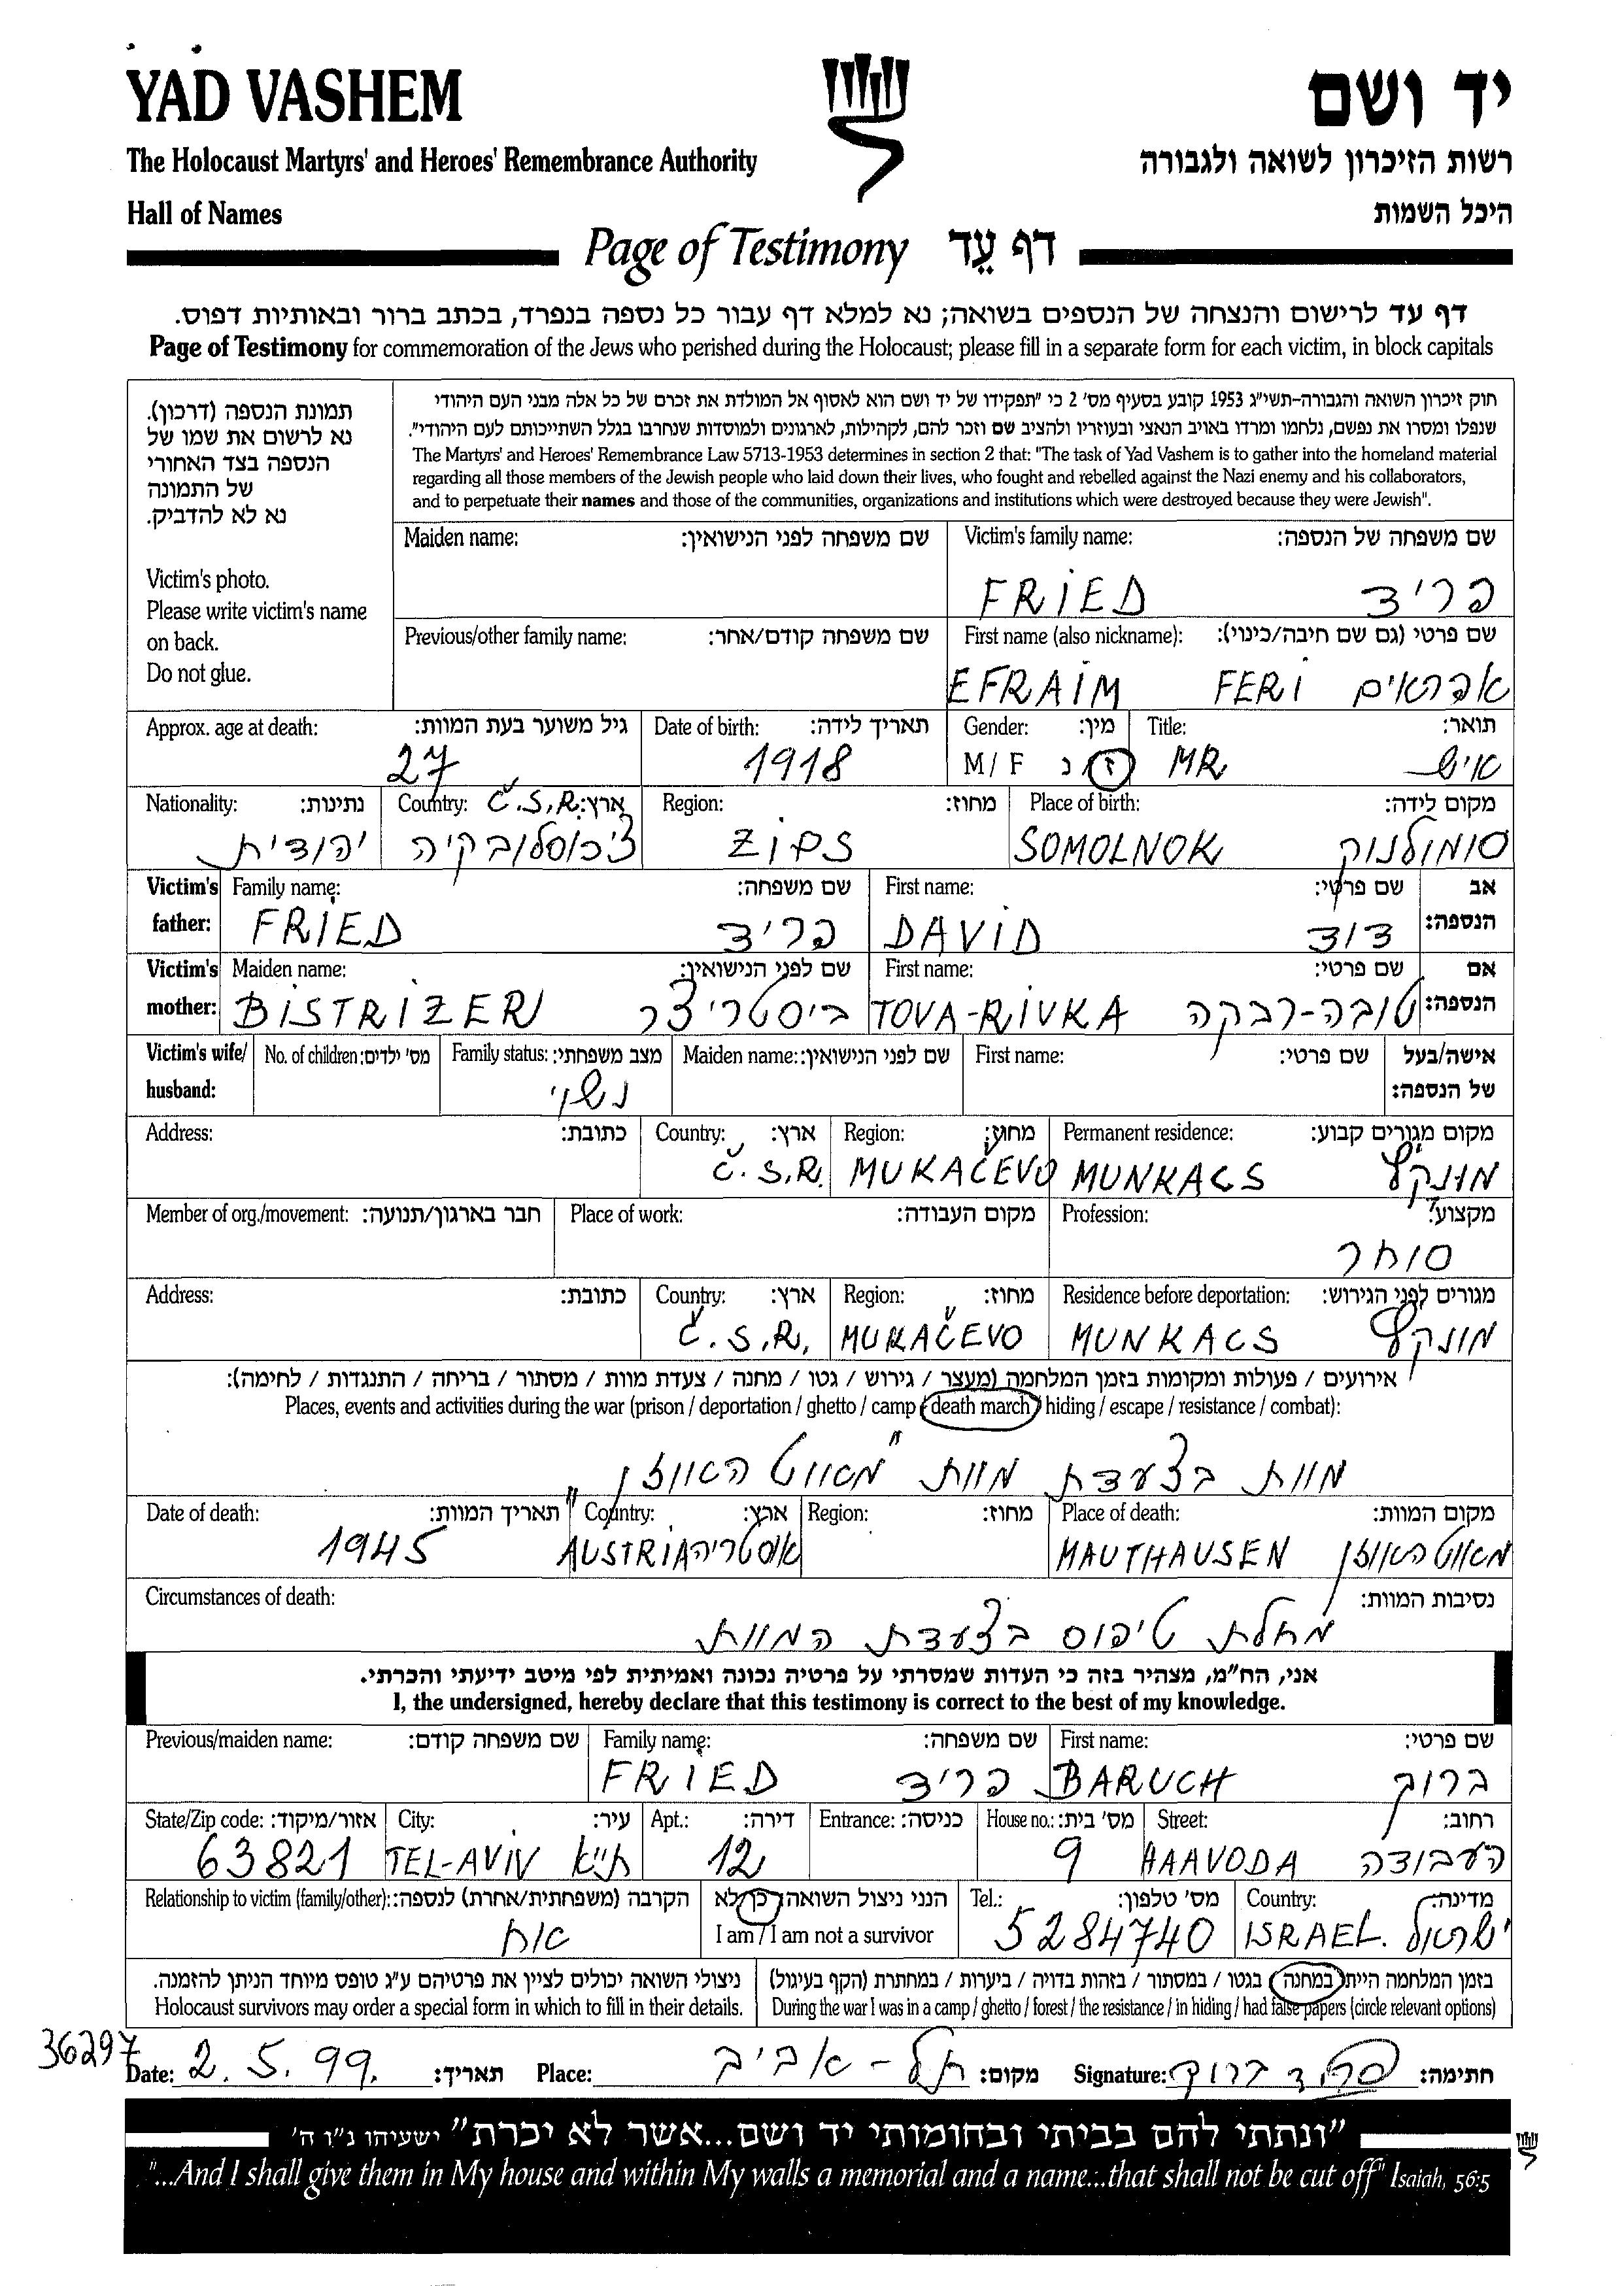 YAD VASHEM יד ושם
The Holocaust Martyrs' and Heroes' Remembrance Authority רשות הזיכרון לשואה ולגבורה
Hall of Names היכל השמות
Page of Testimony דף עֵד
דף עד לרישום והנצחה של הנספים בשואה; נא למלא דף עבור כל נספה בנפרד, בכתב ברור ובאותיות דפוס.
Page of Testimony for commemoration of the Jews who perished during the Holocaust; please fill in a separate form for each victim, in block capitals
תמונת הנספה (דרכון).
נא לרשום את שמו של
הנספה בצד האחורי
של התמונה
נא לא להדביק.
Victim's photo.
Please write victim's name
on back.
Do not glue.
חוק זיכרון השואה והגבורה-תשי"ג 1953 קובע בסעיף מס' 2 כי "תפקידו של יד ושם הוא לאסוף אל המולדת את זכרם של כל אלה מבני העם היהודי
שנפלו ומסרו את נפשם, נלחמו ומרדו באויב הנאצי ובעוזריו ולהציב שם וזכר להם, לקהילות, לארגונים ולמוסדות שנחרבו בגלל השתייכותם לעם היהודי".
The Martyrs' and Heroes' Remembrance Law 5713-1953 determines in section 2 that: "The task of Yad Vashem is to gather into the homeland material
regarding all those members of the Jewish people who laid down their lives, who fought and rebelled against the Nazi enemy and his collaborators,
and to perpetuate their names and those of the communities, organizations and institutions which were destroyed because they were Jewish".
Maiden name: שם משפחה לפני הנישואין: Victim's family name: שם משפחה של הנספה:
FRIED פריד
Previous/other family name: שם משפחה קודם/אחר: First name (also nickname): שם פרטי (גם שם חיבה/כינוי):
EFRAIM FERI אפראים
Approx. age at death: גיל משוער בעת המוות: Date of birth: תאריך לידה: Gender: מין: Title: תואר:
27 1918 M / F ז נ MR איש
Nationality: נתינות: Country: Č.S.R. ארץ: Region: מחוז: Place of birth: מקום לידה:
יהודית צ'כוסלובקיה ZIPS SOMOLNOK סומולנוק
Victim's father: Family name: שם משפחה: First name: שם פרטי: אב הנספה:
FRIED פריד DAVID דוד
Victim's mother: Maiden name: שם לפני הנישואין: First name: שם פרטי: אם הנספה:
BISTRIZER ביסטריצר TOVA-RIVKA טובה-רבקה
Victim's wife/ husband: No. of children: מס' ילדים: Family status: מצב משפחתי: Maiden name: שם לפני הנישואין: First name: שם פרטי: אישה/בעל של הנספה:
נשוי
Address: כתובת: Country: ארץ: Region: מחוז: Permanent residence: מקום מגורים קבוע:
Č.S.R. MUKAČEVO MUNKACS מונקץ'
Member of org./movement: חבר בארגון/תנועה: Place of work: מקום העבודה: Profession: מקצוע:
סוחר
Address: כתובת: Country: ארץ: Region: מחוז: Residence before deportation: מגורים לפני הגירוש:
Č.S.R. MUKAČEVO MUNKACS מונקץ'
אירועים / פעולות ומקומות בזמן המלחמה (מעצר / גירוש / גטו / מחנה / צעדת מוות / מסתור / בריחה / התנגדות / לחימה):
Places, events and activities during the war (prison / deportation / ghetto / camp / death march / hiding / escape / resistance / combat):
מוות בצעדת מוות "מאווט האוזן"
Date of death: תאריך המוות: Country: ארץ: Region: מחוז: Place of death: מקום המוות:
1945 AUSTRIA אוסטריה MAUTHAUSEN מאווטהאוזן
Circumstances of death: נסיבות המוות:
מחלת טיפוס בצעדת המוות
אני, הח"מ, מצהיר בזה כי העדות שמסרתי על פרטיה נכונה ואמיתית לפי מיטב ידיעתי והכרתי.
I, the undersigned, hereby declare that this testimony is correct to the best of my knowledge.
Previous/maiden name: שם משפחה קודם: Family name: שם משפחה: First name: שם פרטי:
FRIED פריד BARUCH ברוך
State/Zip code: אזור/מיקוד: City: עיר: Apt.: דירה: Entrance: כניסה: House no.: מס' בית: Street: רחוב:
63821 TEL-AVIV ת"א 12 9 HAAVODA העבודה
Relationship to victim (family/other): הקרבה (משפחתית/אחרת) לנספה: הנני ניצול השואה כן/לא Tel.: מס' טלפון: Country: מדינה:
אח I am / I am not a survivor 5284740 ISRAEL. ישראל
ניצולי השואה יכולים לציין את פרטיהם ע"ג טופס מיוחד הניתן להזמנה. בזמן המלחמה הייתי במחנה / בגטו / במסתור / בזהות בדויה / ביערות / במחתרת (הקף בעיגול)
Holocaust survivors may order a special form in which to fill in their details. During the war I was in a camp / ghetto / forest / the resistance / in hiding / had false papers (circle relevant options)
36297
Date: 2.5.99. תאריך: Place: תל-אביב מקום: Signature: פריד ברוך חתימה:
"ונתתי להם בביתי ובחומותי יד ושם...אשר לא יכרת" ישעיהו נ"ו ה'
"...And I shall give them in My house and within My walls a memorial and a name...that shall not be cut off" Isaiah, 56:5